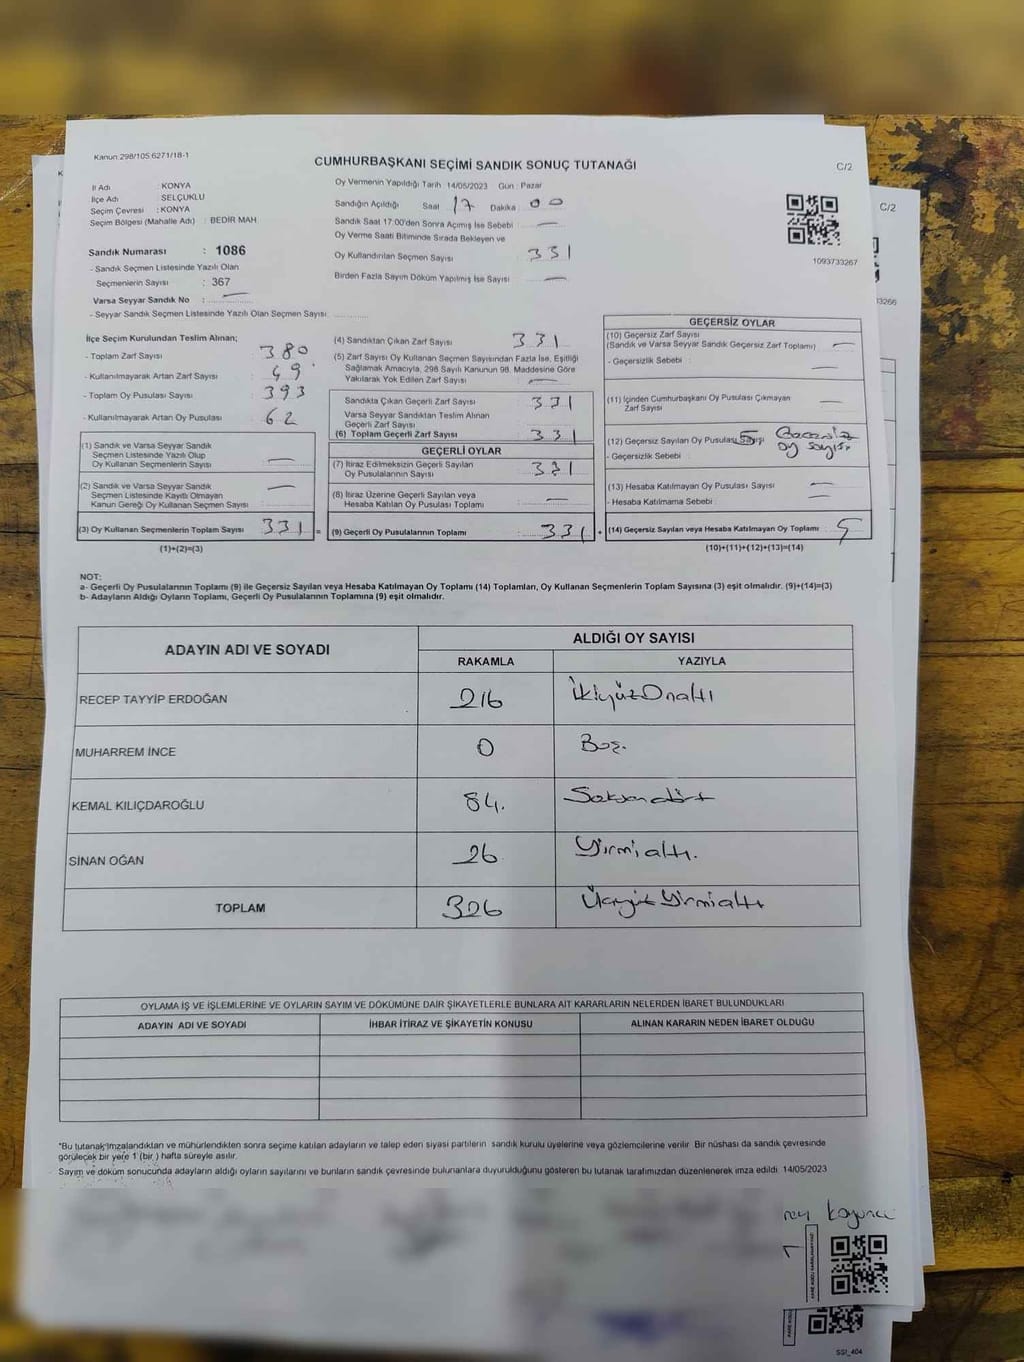 Kanun:298/105 6271/18-1
CUMHURBAŞKANI SEÇİMİ SANDIK SONUÇ TUTANAĞI
C/2
İl Adı : KONYA
İlçe Adı : SELÇUKLU
Seçim Çevresi : KONYA
Seçim Bölgesi (Mahalle Adı) : BEDİR MAH.
Sandık Numarası : 1086
- Sandık Seçmen Listesinde Yazılı Olan
Seçmenlerin Sayısı : 367
Varsa Seyyar Sandık No :
- Seyyar Sandık Seçmen Listesinde Yazılı Olan Seçmen Sayısı
Oy Vermenin Yapıldığı Tarih 14/05/2023 Gün : Pazar
Sandığın Açıldığı Saat 17 Dakika 00
Sandık Saat 17:00'den Sonra Açımış İse Sebebi —
Oy Verme Saati Bitiminde Sırada Bekleyen ve
Oy Kullandırılan Seçmen Sayısı 331
Birden Fazla Sayım Döküm Yapılmış İse Sayısı —
1093733267
C/2
3266
İlçe Seçim Kurulundan Teslim Alınan;
- Toplam Zarf Sayısı 380
- Kullanılmayarak Artan Zarf Sayısı 49
- Toplam Oy Pusulası Sayısı 393
- Kullanılmayarak Artan Oy Pusulası 62
(1) Sandık ve Varsa Seyyar Sandık
Seçmen Listesinde Yazılı Olup
Oy Kullanan Seçmenlerin Sayısı —
(2) Sandık ve Varsa Seyyar Sandık
Seçmen Listesinde Kayıtlı Olmayan
Kanun Gereği Oy Kullanan Seçmen Sayısı —
(3) Oy Kullanan Seçmenlerin Toplam Sayısı 331 =
(1)+(2)=(3)
(4) Sandıktan Çıkan Zarf Sayısı 331
(5) Zarf Sayısı Oy Kullanan Seçmen Sayısından Fazla İse, Eşitliği
Sağlamak Amacıyla, 298 Sayılı Kanunun 98. Maddesine Göre
Yakılarak Yok Edilen Zarf Sayısı —
Sandıkta Çıkan Geçerli Zarf Sayısı 331
Varsa Seyyar Sandıktan Teslim Alınan
Geçerli Zarf Sayısı
(6) Toplam Geçerli Zarf Sayısı 331
GEÇERLİ OYLAR
(7) İtiraz Edilmeksizin Geçerli Sayılan
Oy Pusulalarının Sayısı 331
(8) İtiraz Üzerine Geçerli Sayılan veya
Hesaba Katılan Oy Pusulası Toplamı —
(9) Geçerli Oy Pusulalarının Toplamı 331 +
GEÇERSİZ OYLAR
(10) Geçersiz Zarf Sayısı
(Sandık ve Varsa Seyyar Sandık Geçersiz Zarf Toplamı) —
- Geçersizlik Sebebi : —
(11) İçinden Cumhurbaşkanı Oy Pusulası Çıkmayan
Zarf Sayısı —
(12) Geçersiz Sayılan Oy Pusulası Sayısı 5 Geçersiz
oy sayısı
- Geçersizlik Sebebi :
(13) Hesaba Katılmayan Oy Pusulası Sayısı —
- Hesaba Katılmama Sebebi : —
(14) Geçersiz Sayılan veya Hesaba Katılmayan Oy Toplamı 5
(10)+(11)+(12)+(13)=(14)
NOT:
a- Geçerli Oy Pusulalarının Toplamı (9) ile Geçersiz Sayılan veya Hesaba Katılmayan Oy Toplamı (14) Toplamları, Oy Kullanan Seçmenlerin Toplam Sayısına (3) eşit olmalıdır. (9)+(14)=(3)
b- Adayların Aldığı Oyların Toplamı, Geçerli Oy Pusulalarının Toplamına (9) eşit olmalıdır.
ADAYIN ADI VE SOYADI
ALDIĞI OY SAYISI
RAKAMLA YAZIYLA
RECEP TAYYİP ERDOĞAN 216 İkiyüzOnaltı
MUHARREM İNCE 0 Boş.
KEMAL KILIÇDAROĞLU 84. Seksendört
SİNAN OĞAN 26 Yirmialtı.
TOPLAM 326 ÜçyüzYirmialtı
OYLAMA İŞ VE İŞLEMLERİNE VE OYLARIN SAYIM VE DÖKÜMÜNE DAİR ŞİKAYETLERLE BUNLARA AİT KARARLARIN NELERDEN İBARET BULUNDUKLARI
ADAYIN ADI VE SOYADI İHBAR İTİRAZ VE ŞİKAYETİN KONUSU ALINAN KARARIN NEDEN İBARET OLDUĞU
*Bu tutanak imzalandıktan ve mühürlendikten sonra seçime katılan adayların ve talep eden siyasi partilerin sandık kurulu üyelerine veya gözlemcilerine verilir. Bir nüshası da sandık çevresinde
görülecek bir yere 1 (bir ) hafta süreyle asılır.
Sayım ve döküm sonucunda adayların aldığı oyların sayılarını ve bunların sandık çevresinde bulunanlara duyurulduğunu gösteren bu tutanak tarafımızdan düzenlenerek imza edildi. 14/05/2023
SSI_404